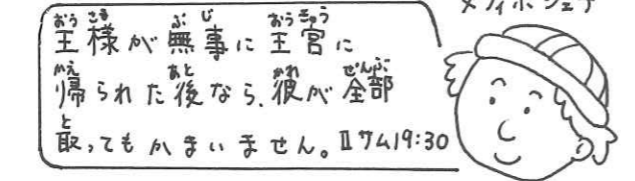 メフィボシェテ
王様が無事に王宮に
帰られた後なら、彼が全部
取ってもかまいません。Ⅱサム19:30